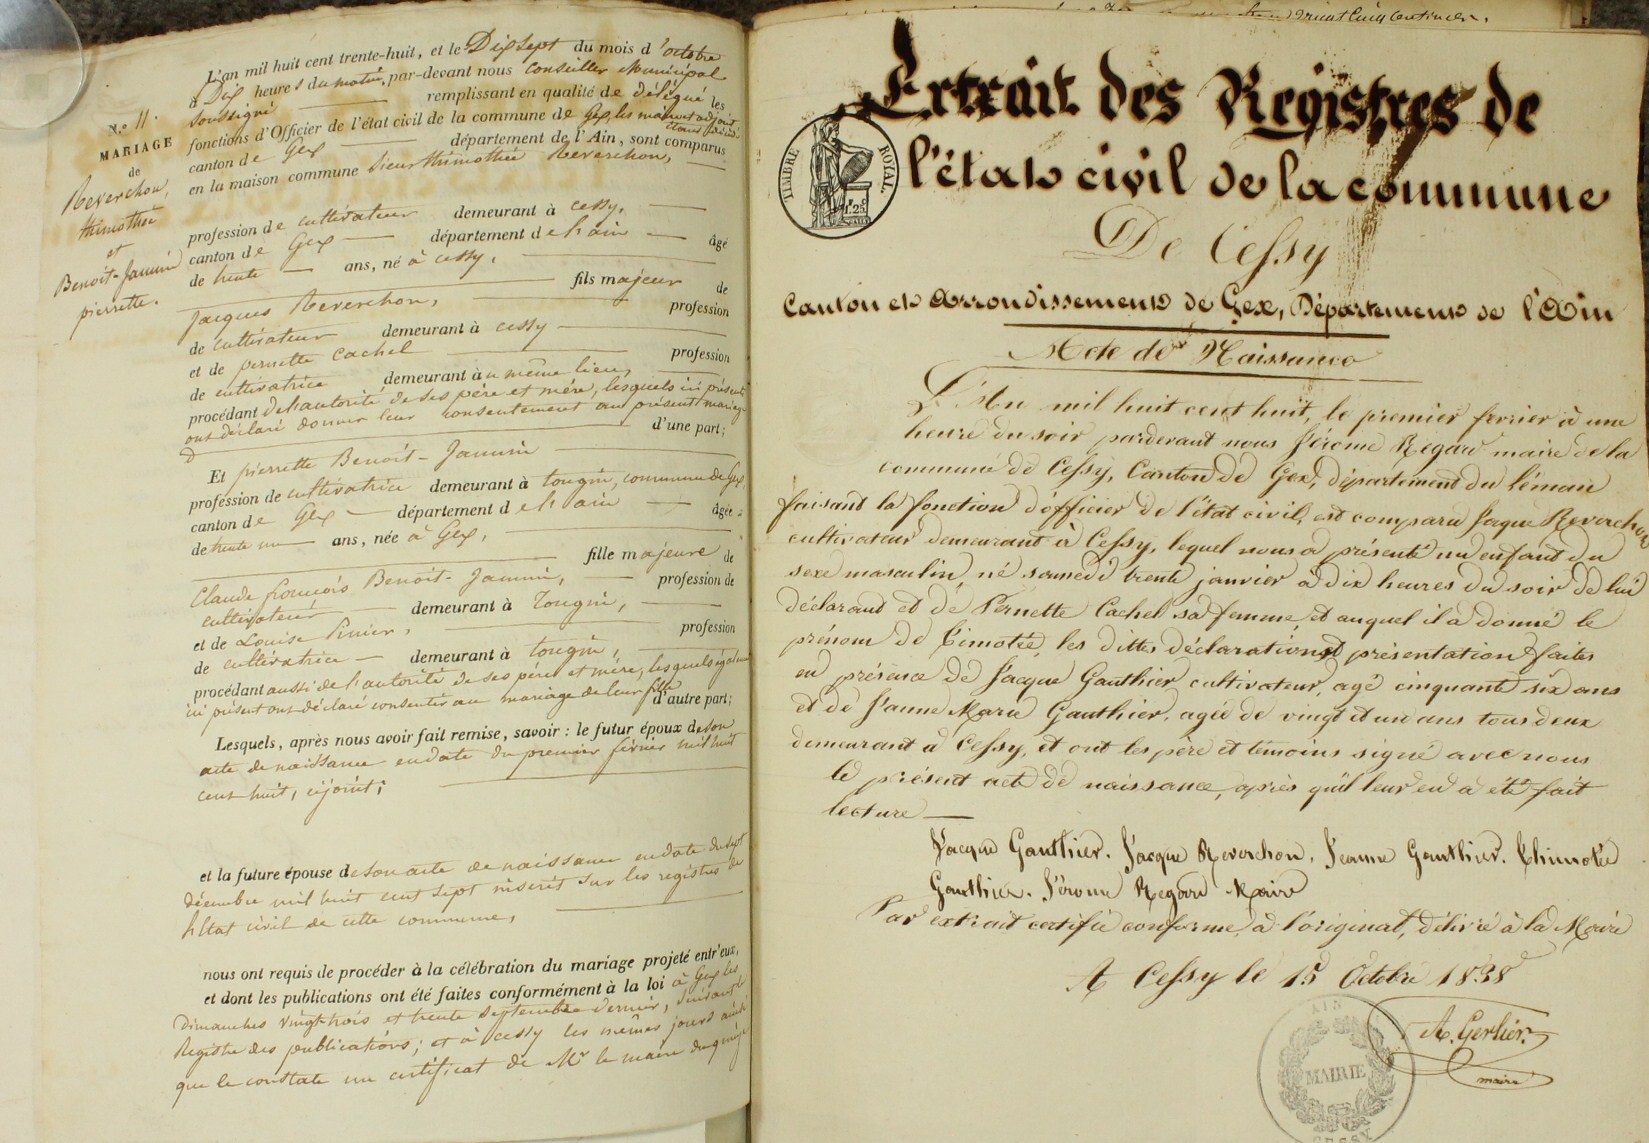 N.º 11.
MARIAGE
de
Reverchon,
thimothée
et
Benoit-Jannin
pierrette.
L'an mil huit cent trente-huit, et le Dix Sept du mois d'octobre
à Dix heures du matin, par-devant nous Conseiller Municipal
Soussigné remplissant en qualité de délégué les
fonctions d'Officier de l'état civil de la commune de Gex, les maire et adjoint
canton de Gex département de l'Ain, sont comparus
en la maison commune Sieur thimothée Reverchon,
profession de cultivateur demeurant à cessy,
canton de Gex département de l'ain âgé
de trente ans, né à cessy,
fils majeur de
Jacques Reverchon, profession
de cultivateur demeurant à cessy
et de pernette Cachel profession
de cultivatrice demeurant au même lieu,
procédant de l'autorité de ses père et mère, lesquels ici présents
ont déclaré donner leur consentement au présent mariage
d'une part;
Et pierrette Benoit-Jannin
profession de cultivatrice demeurant à tougin, commune de Gex,
canton de Gex département de l'ain âgée
de trente un ans, née à Gex,
fille majeure de
Claude françois Benoit-Jannin, profession de
cultivateur demeurant à Tougin,
et de Louise profession
de cultivatrice demeurant à tougin,
procédant aussi de l'autorité de ses père et mère, lesquels
ici présent ont déclaré consentir au mariage de leur fille d'autre part;
Lesquels, après nous avoir fait remise, savoir : le futur époux de son
acte de naissance en date du premier février mil huit
cent huit, cijoint;
et la future épouse de son acte de naissance en date du sept
décembre mil huit cent sept inscrit sur les registres de
l'Etat civil de cette commune,
nous ont requis de procéder à la célébration du mariage projeté entr'eux,
et dont les publications ont été faites conformément à la loi à Gex les
Dimanches vingt-trois et trente Septembre dernier, suivant le
Registre des publications; et à cessy les mêmes jours ainsi
que le constate un certificat de Mr le maire du
vingt cinq centimes.
Extrait des Registres de
TIMBRE ROYAL.
l'état civil de la commune
De Cessy
Canton et Arrondissement de Gex, Département de l'Ain
Acte de Naissance
L'An mil huit cent huit, le premier fevrier à une
heure du soir pardevant nous Jérome Regard maire de la
commune de Cessy, Canton de Gex, département du Léman
faisant la fonction d'officier de l'état civil, est comparu Jaque Reverchon
cultivateur demeurant à Cessy, lequel nous a présenté un enfant du
sexe masculin, né samedi trente janvier à dix heures du soir de lui
déclarant et de Pernette Cachel sa femme, et auquel il a donné le
prénom de Timotée, les dittes déclaration et présentation faites
en présence de Jacque Gauthier cultivateur, agé cinquante six ans
et de Janne Marie Gauthier, agée de vingt et un ans tous deux
demeurant à Cessy, et ont les père et témoins signé avec nous
le présent acte de naissance, après qu'il leur en a été fait
lecture
Jacque Gauthier. Jacque Reverchon, Jeanne Gauthier. Thimotée
Gauthier. Jérome Regard Maire
Par extrait certifié conforme, à l'original, délivré à la Mairie
A Cessy le 15 Octobre 1838
A. Gerlier.
maire
AIN
MAIRIE
CESSY